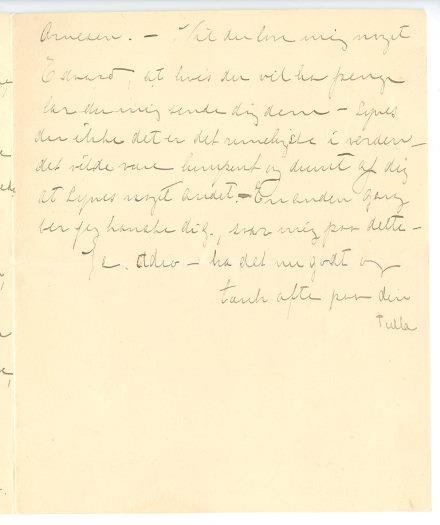 Arnesen. – Vil du love mig noget
Edvard, at hvis du vil ha penge
lar du mig sende dig dem – Synes
du ikke det er det rimeligste i verden –
det vilde være simpent og dumt af dig
at synes noget andet – En anden gang
ber jeg kanske dig., svar mig paa dette –
Ja. Adio – ha det nu godt og
tænk ofte paa din
Tulla